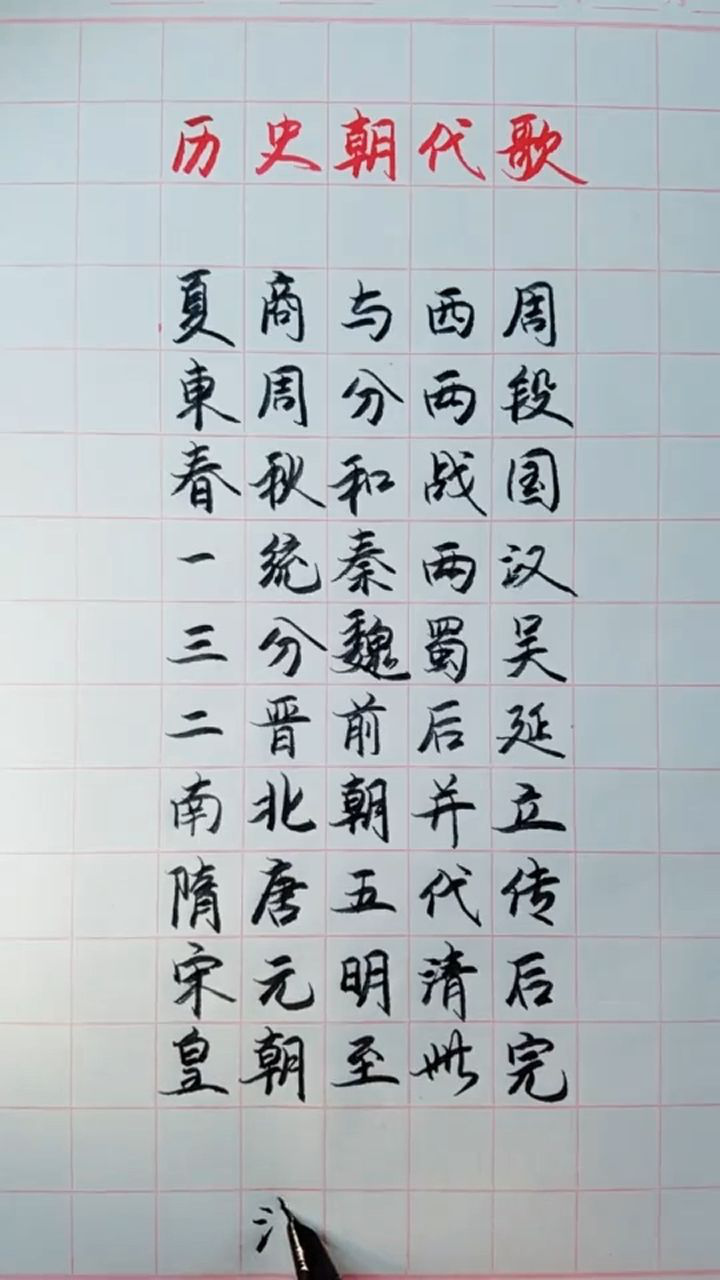 历史朝代歌
夏商与西周
東周分两段
春秋和战国
一统秦两汉
三分魏蜀吴
二晋前后延
南北朝并立
隋唐五代传
宋元明清后
皇朝至此完